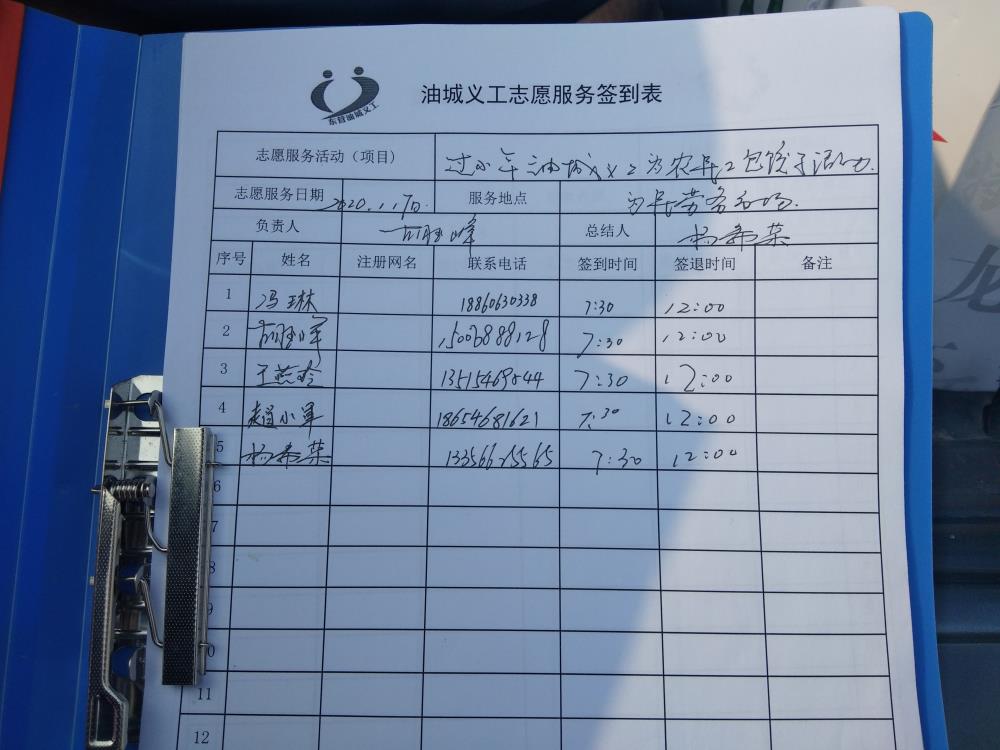 油城义工志愿服务签到表
东营油城义工
志愿服务活动（项目） 过小年油城义工为农民工包饺子活动
志愿服务日期 2020.1.17日 服务地点 为民劳务市场
负责人 总结人 杨希菜
序号 姓名 注册网名 联系电话 签到时间 签退时间 备注
1 冯琳 18860630338 7:30 12:00
2 15006888128 7:30 12:00
3 王燕玲 7:30 12:00
4 赵小军 18654681621 7:30 12:00
5 杨希菜 7:30 12:00
6
7
8
9
10
11
12